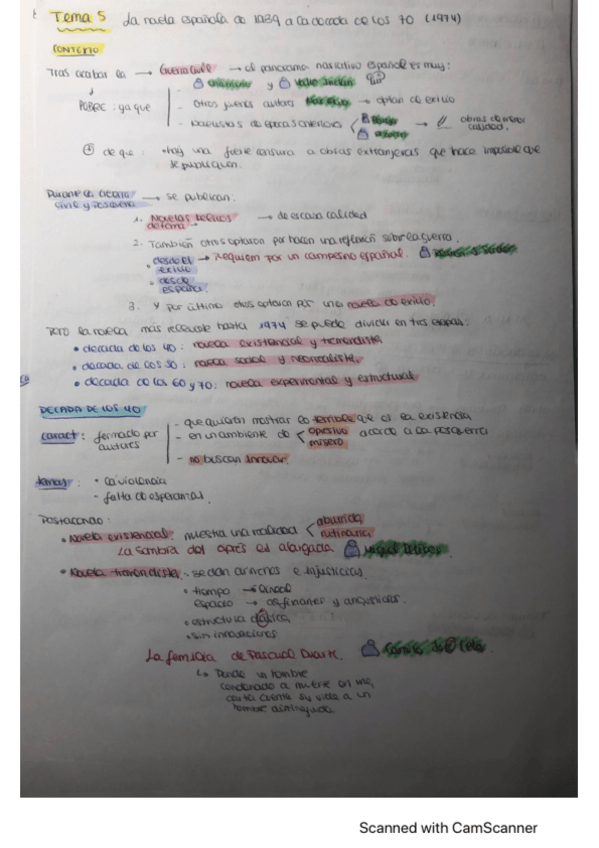 Tema 5 La novela española de 1939 a la década de los 70 (1974)
CONTEXTO
Tras acabar la → Guerra Civil → el panorama narrativo español es muy:
y Valle Inclán
POBRE: ya que
- Otros jóvenes autores → optan de exilio
- Novelistas de épocas anteriores → obras de menor calidad.
de que: hay una fuerte censura a obras extranjeras que hace imposible que
se publiquen.
→ se publican:
1. Novelas → de escasa calidad
2. También otros optaron por hacer una reflexión sobre la guerra.
desde el exilio → Requiem por un campesino español.
desde españa.
3. Y por último otros optaron por una novela de exilio.
la novela más hasta 1974 se puede dividir en tres etapas:
• década de los 40: novela existencial y tremendista
• década de los 50: novela social y neorrealista.
• década de los 60 y 70: novela experimental y estructural
DECADA DE LOS 40
caract: formado por autores
- que quieren mostrar lo terrible que es la existencia
- en un ambiente de opresivo mísero acorde a la posguerra
- no buscan innovar.
temas: • la violencia
- falta de esperanza.
Destacando:
• Novela existencial: muestra una realidad aburrida rutinaria
La sombra del ciprés es alargada Miguel Delibes.
• Novela tremendista: - se dan crímenes e injusticias.
• tiempo → lineal
espacio →
• estructura clásica
• sin innovaciones
La familia de Pascual Duarte. Camilo José Cela.
↳ Donde un hombre
condenado a muerte en una
carta cuenta su vida a un
hombre distinguido.
Scanned with CamScanner